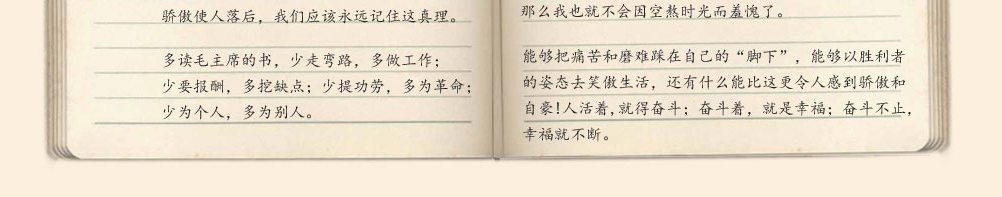 骄傲使人落后，我们应该永远记住这真理。
多读毛主席的书，少走弯路，多做工作；
少要报酬，多挖缺点；少提功劳，多为革命；
少为个人，多为别人。
那么我也就不会因空熬时光而羞愧了。
能够把痛苦和磨难踩在自己的“脚下”，能够以胜利者
的姿态去笑傲生活，还有什么能比这更令人感到骄傲和
自豪！人活着，就得奋斗；奋斗着，就是幸福；奋斗不止，
幸福就不断。